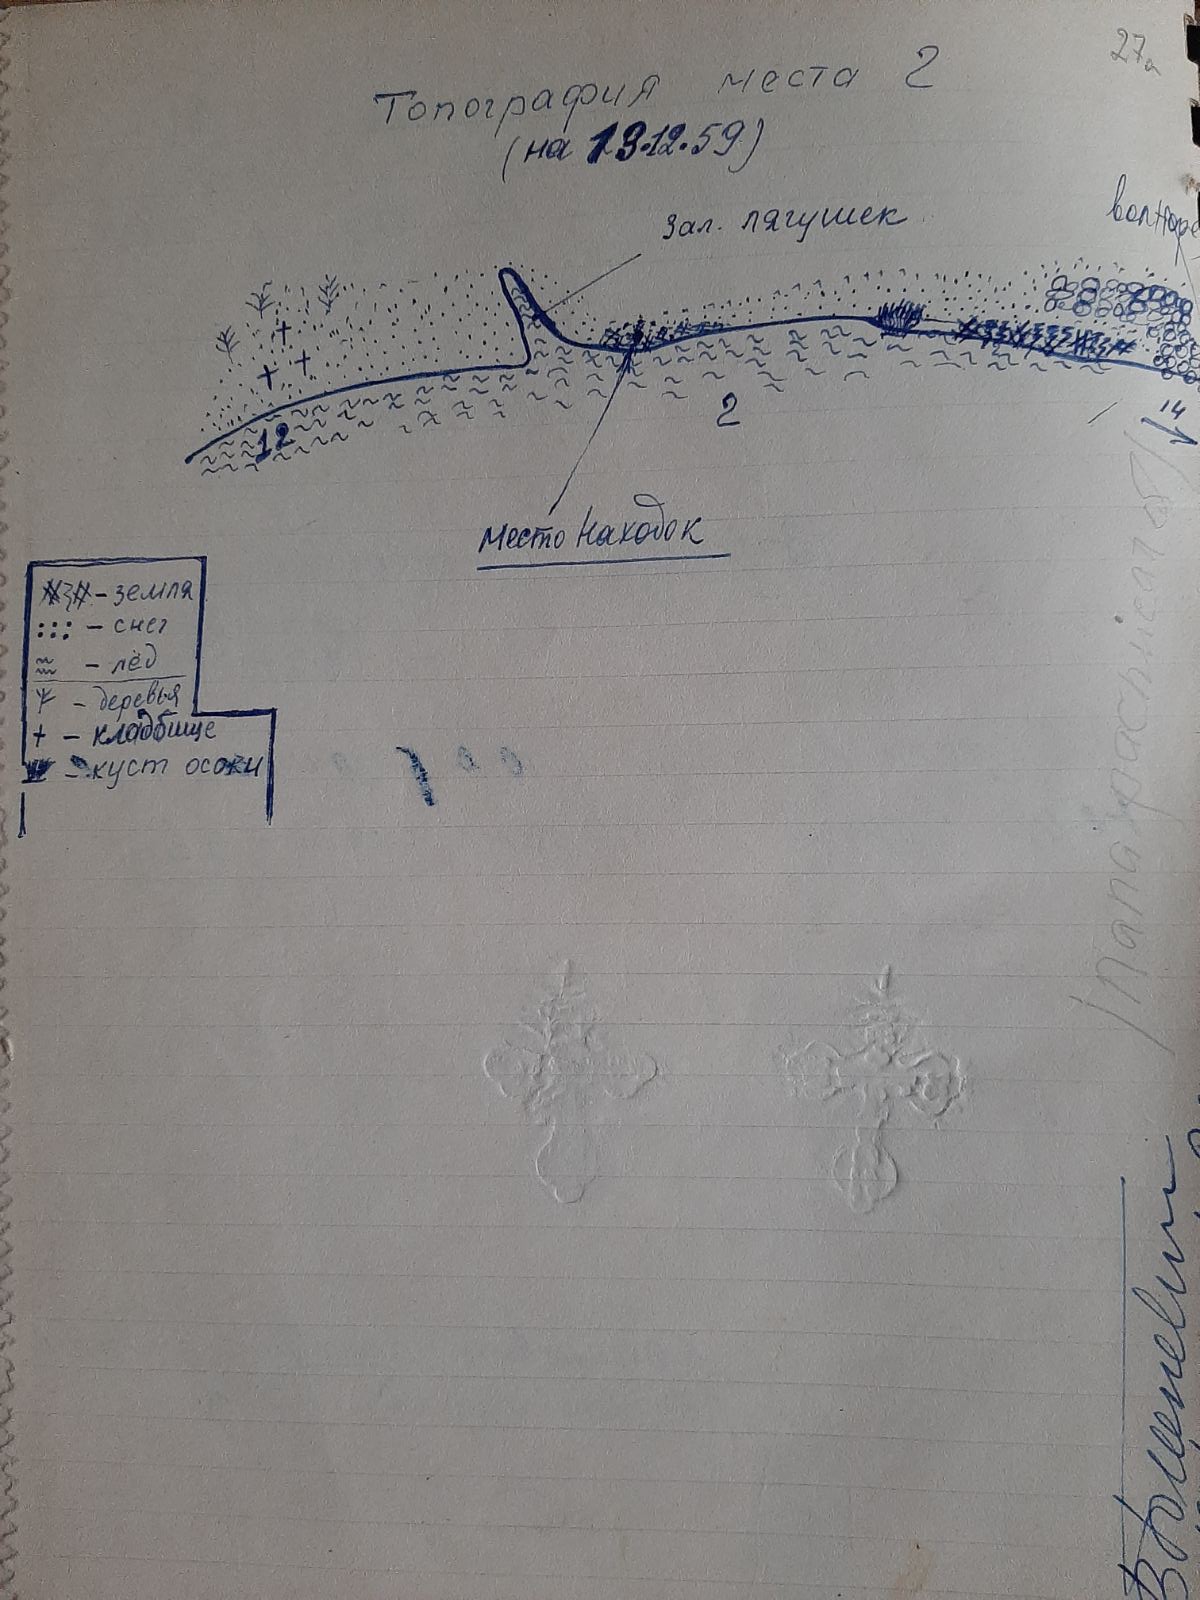 27а
Топография места 2
(на 13.12.59)
зал. лягушек
волнорe
12
2
14
место находок
– земля
– снег
– лёд
– деревья
+ – кладбище
– куст осоки